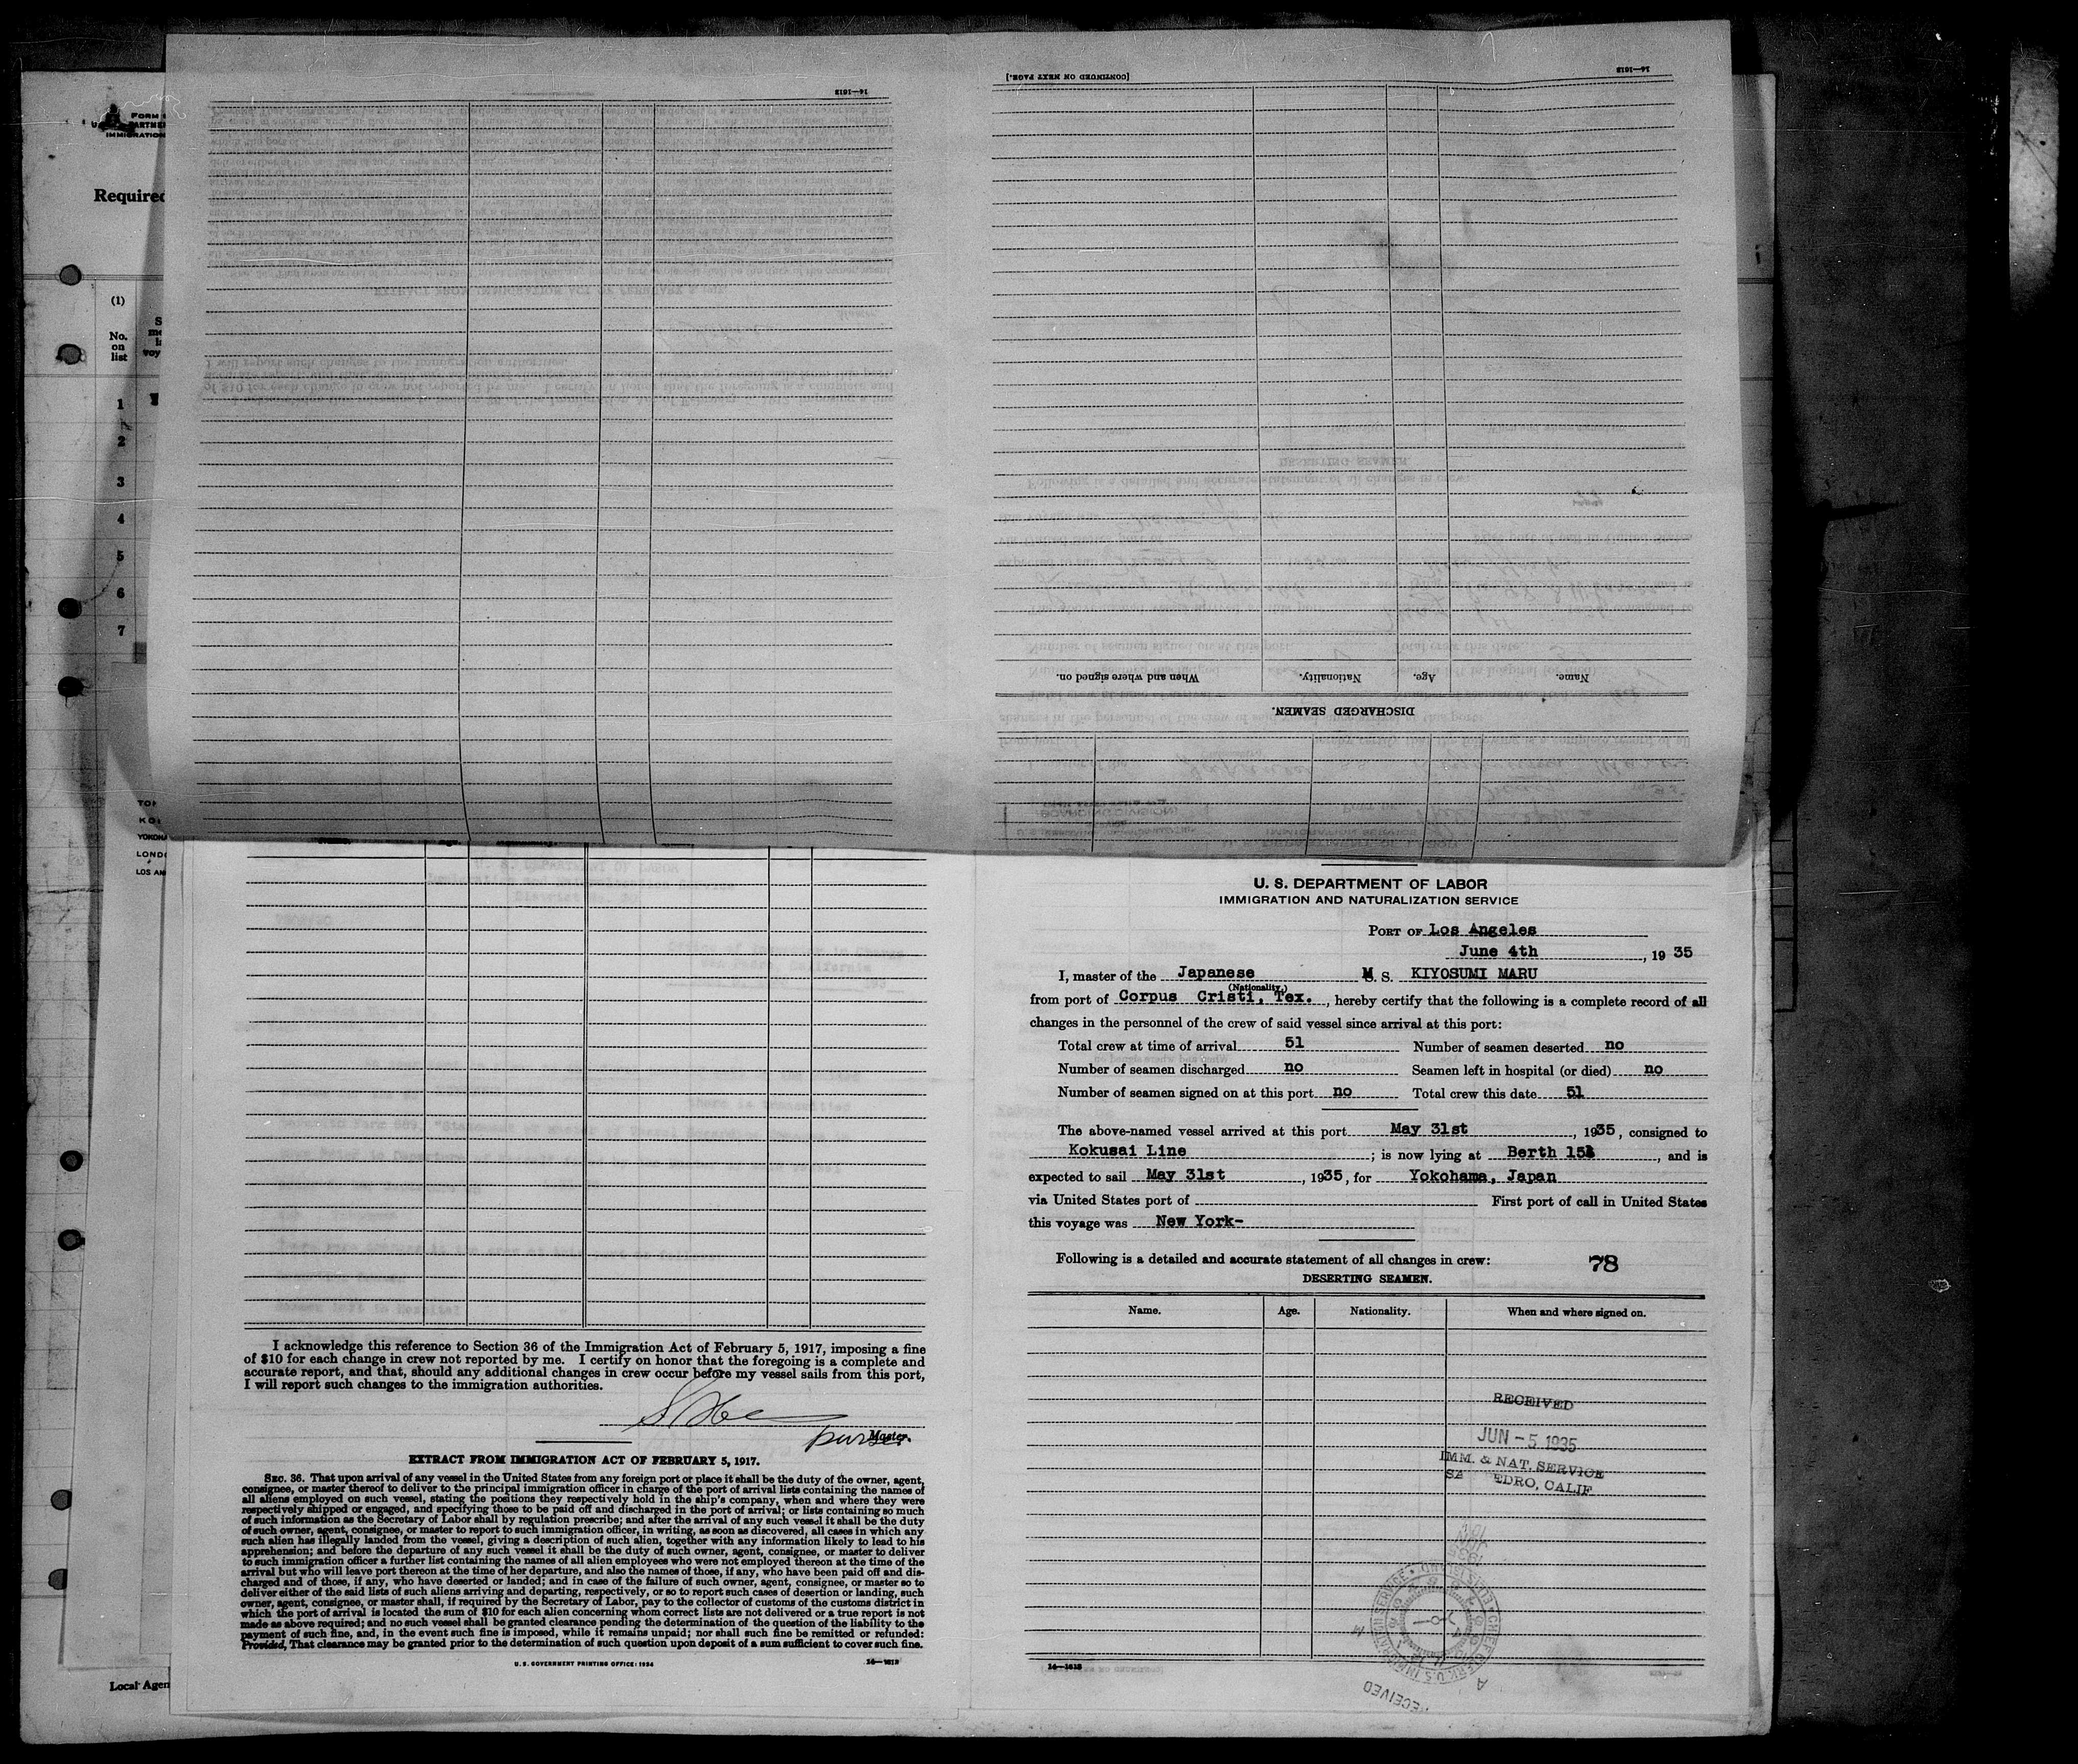 FORM
IMMIGRATION
Required
(1)
No.
on
list
1
2
3
4
5
6
7
YOKOHA
LOS AN
Local Agen
16—1613
[CONTINUED ON NEXT PAGE.]
16—1613
When and where signed on.
Nationality.
Age.
Name.
DISCHARGED SEAMEN.
I acknowledge this reference to Section 36 of the Immigration Act of February 5, 1917, imposing a fine
of $10 for each change in crew not reported by me. I certify on honor that the foregoing is a complete and
accurate report, and that, should any additional changes in crew occur before my vessel sails from this port,
I will report such changes to the immigration authorities.
Master.
purser
EXTRACT FROM IMMIGRATION ACT OF FEBRUARY 5, 1917.
SEC. 36. That upon arrival of any vessel in the United States from any foreign port or place it shall be the duty of the owner, agent,
consignee, or master thereof to deliver to the principal immigration officer in charge of the port of arrival lists containing the names of
all aliens employed on such vessel, stating the positions they respectively hold in the ship's company, when and where they were
respectively shipped or engaged, and specifying those to be paid off and discharged in the port of arrival; or lists containing so much
of such information as the Secretary of Labor shall by regulation prescribe; and after the arrival of any such vessel it shall be the duty
of such owner, agent, consignee, or master to report to such immigration officer, in writing, as soon as discovered, all cases in which any
such alien has illegally landed from the vessel, giving a description of such alien, together with any information likely to lead to his
apprehension; and before the departure of any such vessel it shall be the duty of such owner, agent, consignee, or master to deliver
to such immigration officer a further list containing the names of all alien employees who were not employed thereon at the time of the
arrival but who will leave port thereon at the time of her departure, and also the names of those, if any, who have been paid off and dis-
charged and of those, if any, who have deserted or landed; and in case of the failure of such owner, agent, consignee, or master so to
deliver either of the said lists of such aliens arriving and departing, respectively, or so to report such cases of desertion or landing, such
owner, agent, consignee, or master shall, if required by the Secretary of Labor, pay to the collector of customs of the customs district in
which the port of arrival is located the sum of $10 for each alien concerning whom correct lists are not delivered or a true report is not
made as above required; and no such vessel shall be granted clearance pending the determination of the question of the liability to the
payment of such fine, and, in the event such fine is imposed, while it remains unpaid; nor shall such fine be remitted or refunded:
Provided, That clearance may be granted prior to the determination of such question upon deposit of a sum sufficient to cover such fine.
U. S. GOVERNMENT PRINTING OFFICE: 1934
16—1613
U. S. DEPARTMENT OF LABOR
IMMIGRATION AND NATURALIZATION SERVICE
PORT OF Los Angeles
June 4th, 1935
I, master of the Japanese M. S. KIYOSUMI MARU
(Nationality.)
from port of Corpus Cristi, Tex., hereby certify that the following is a complete record of all
changes in the personnel of the crew of said vessel since arrival at this port:
Total crew at time of arrival 51 Number of seamen deserted no
Number of seamen discharged no Seamen left in hospital (or died) no
Number of seamen signed on at this port no Total crew this date 51
The above-named vessel arrived at this port May 31st, 1935, consigned to
Kokusai Line; is now lying at Berth 15, and is
expected to sail May 31st, 1935, for Yokohama, Japan
via United States port of First port of call in United States
this voyage was New York-
Following is a detailed and accurate statement of all changes in crew:
78
DESERTING SEAMEN.
Name. Age. Nationality. When and where signed on.
RECEIVED
JUN - 5 1935
IMM. & NAT. SERVICE
EDRO, CALIF
16—1613
RECEIVED